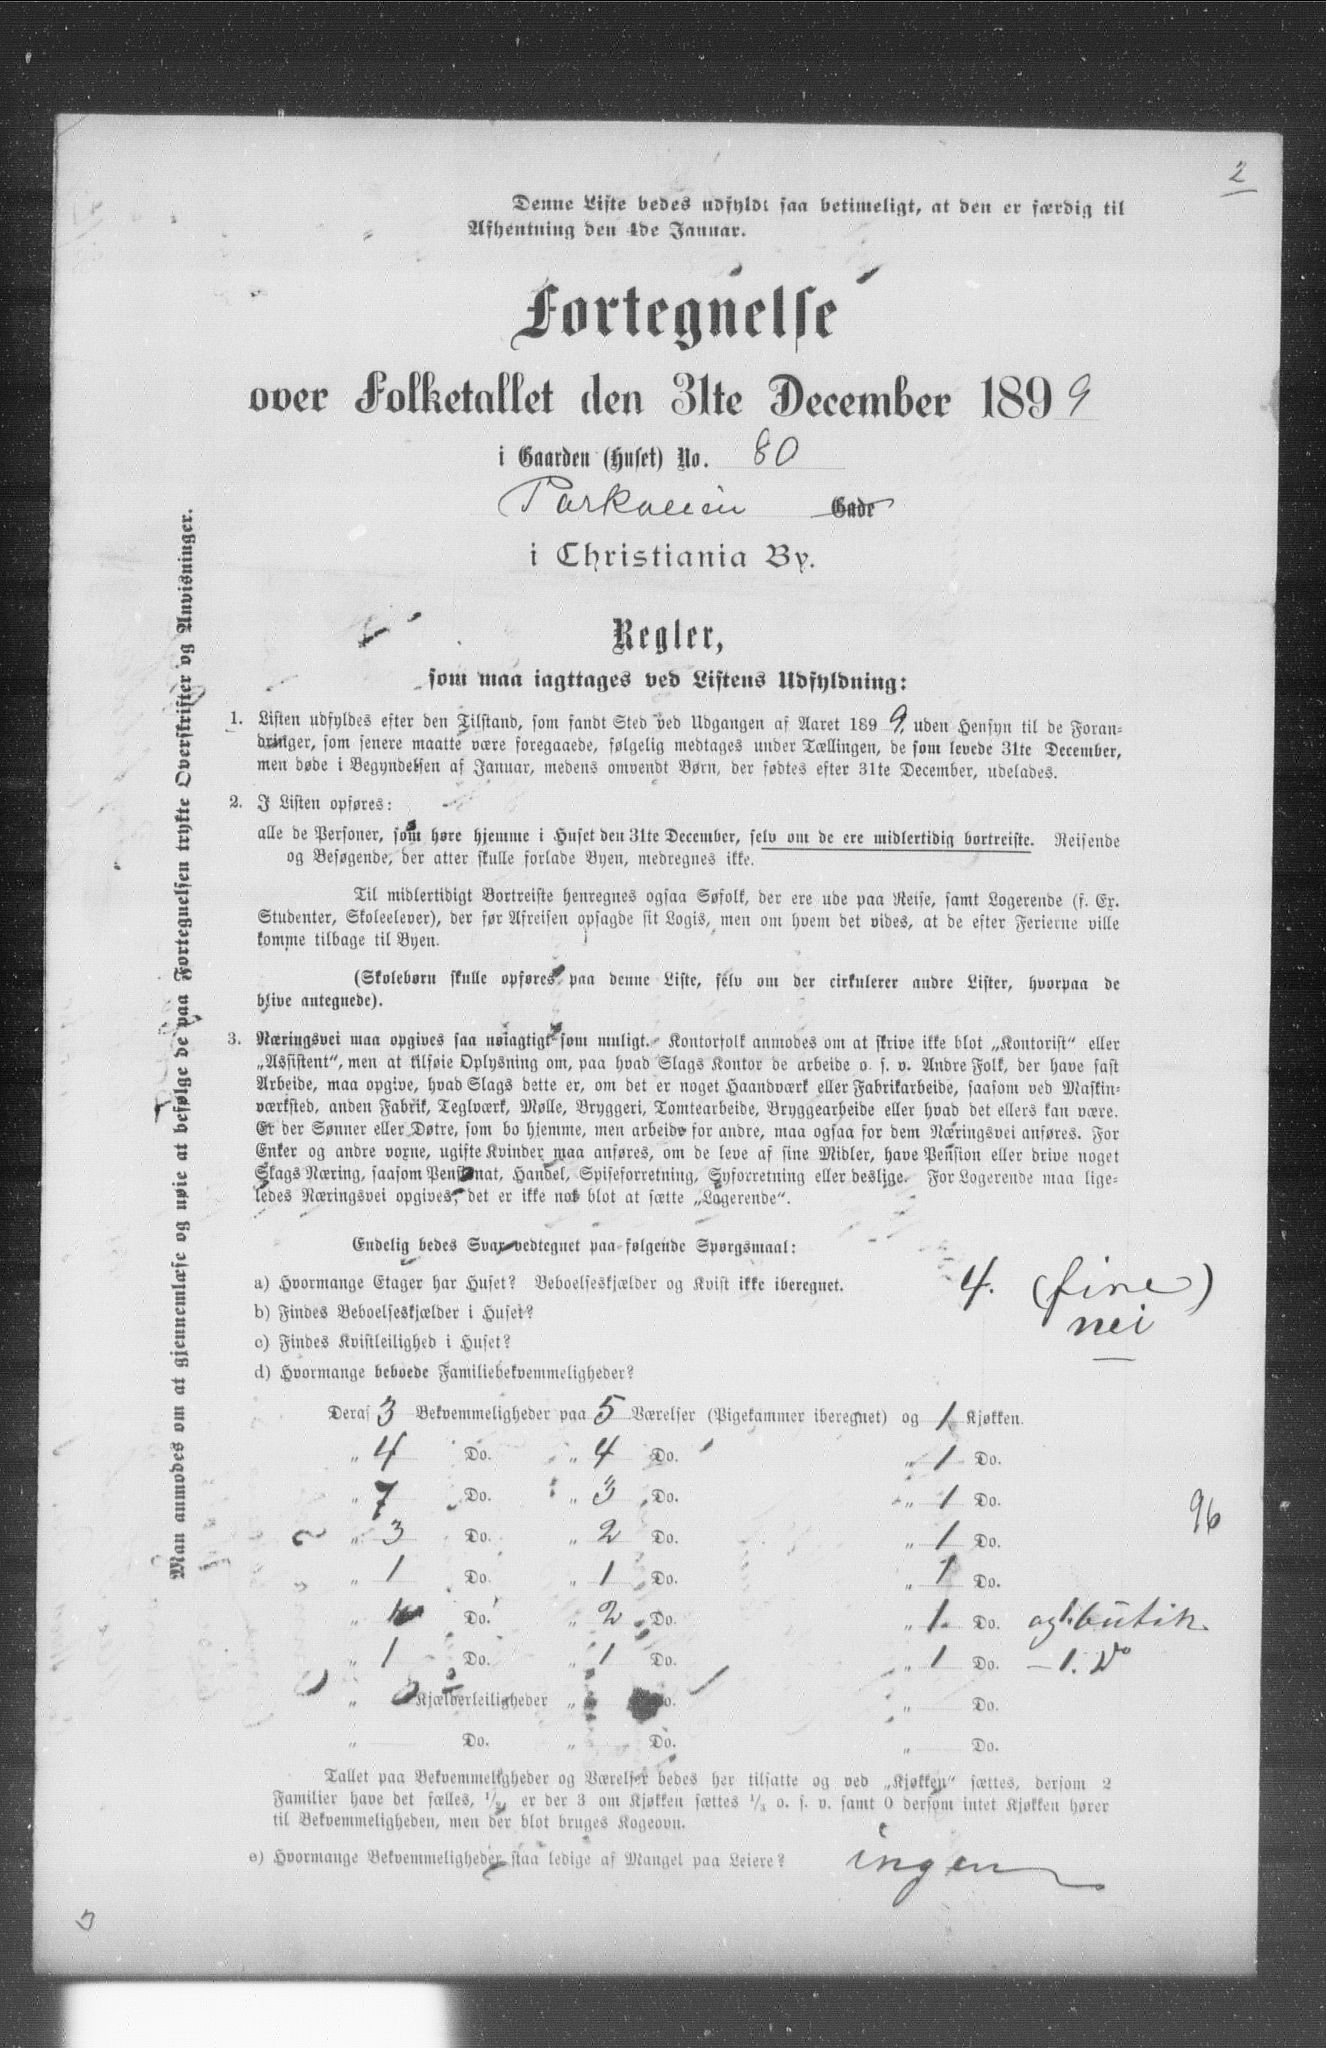 2
Denne Liste bedes udfyldt saa betimeligt, at den er færdig til
Afhentning den 4de Januar.
Fortegnelse
over Folketallet den 31te December 1899
i Gaarden (Huset) No. 80
Parkveien Gade
i Christiania By.
Regler,
som maa iagttages ved Listens Udfyldning:
1. Listen udfyldes efter den Tilstand, som fandt Sted ved Udgangen af Aaret 1899, uden Hensyn til de Foran-
dringer, som senere maatte være foregaaede, følgelig medtages under Tællingen, de som levede 31te December,
men døde i Begyndelsen af Januar, medens omvendt Børn, der fødtes efter 31te December, udelades.
2. I Listen opføres:
alle de Personer, som høre hjemme i Huset den 31te December, selv om de ere midlertidig bortreiste. Reisende
og Besøgende, der atter skulle forlade Byen, medregnes ikke.
Til midlertidigt Bortreiste henregnes ogsaa Søfolk, der ere ude paa Reise, samt Logerende (f. Ex.
Studenter, Skoleelever), der før Afreisen opsagde sit Logis, men om hvem det vides, at de efter Ferierne ville
komme tilbage til Byen.
(Skolebørn skulle opføres paa denne Liste, selv om der cirkulerer andre Lister, hvorpaa de
blive antegnede).
3. Næringsvei maa opgives saa nøiagtigt som muligt. Kontorfolk anmodes om at skrive ikke blot „Kontorist" eller
„Assistent", men at tilføie Oplysning om, paa hvad Slags Kontor de arbeide o. s. v. Andre Folk, der have fast
Arbeide, maa opgive, hvad Slags dette er, om det er noget Haandværk eller Fabrikarbeide, saasom ved Maskin-
værksted, anden Fabrik, Teglværk, Mølle, Bryggeri, Tomtearbeide, Bryggearbeide eller hvad det ellers kan være.
Er der Sønner eller Døtre, som bo hjemme, men arbeide for andre, maa ogsaa for dem Næringsvei anføres. For
Enker og andre voxne, ugifte Kvinder maa anføres, om de leve af sine Midler, have Pension eller drive noget
Slags Næring, saasom Pensionat, Handel, Spiseforretning, Syforretning eller deslige. For Logerende maa lige-
ledes Næringsvei opgives, det er ikke nok blot at sætte „Logerende".
Endelig bedes Svar vedtegnet paa følgende Spørgsmaal:
a) Hvormange Etager har Huset? Beboelseskjælder og Kvist ikke iberegnet. 4. (fire)
b) Findes Beboelseskjælder i Huset? nei
c) Findes Kvistleilighed i Huset? —
d) Hvormange beboede Familiebekvemmeligheder?
Deraf 3 Bekvemmeligheder paa 5 Værelser (Pigekammer iberegnet) og 1 Kjøkken.
„ 4 Do. „ 4 Do. „ 1 Do.
„ 7 Do. „ 3 Do. „ 1 Do.
96
„ 3 Do. „ 2 Do. „ 1 Do.
„ 1 Do. „ 1 Do. „ 1 Do.
„ Do. „ 2 Do. „ 1 Do. og 1. butik.
„ 1 Do. „ 1 Do. „ 1 Do. — 1. Do
„ Kjælderleiligheder „ Do. „ Do.
„ Do. „ Do. „ Do.
Tallet paa Bekvemmeligheder og Værelser bedes her tilsatte og ved „Kjøkken" sættes, dersom 2
Familier have det fælles, 1/2, er der 3 om Kjøkken sættes 1/3 o. s. v. samt 0 dersom intet Kjøkken hører
til Bekvemmeligheden, men der blot bruges Kogeovn.
e) Hvormange Bekvemmeligheder staa ledige af Mangel paa Leiere? ingen
Man anmodes om at gjennemlæse og nøie at befølge de paa Fortegnelsen trykte Overskrifter og Anvisninger.